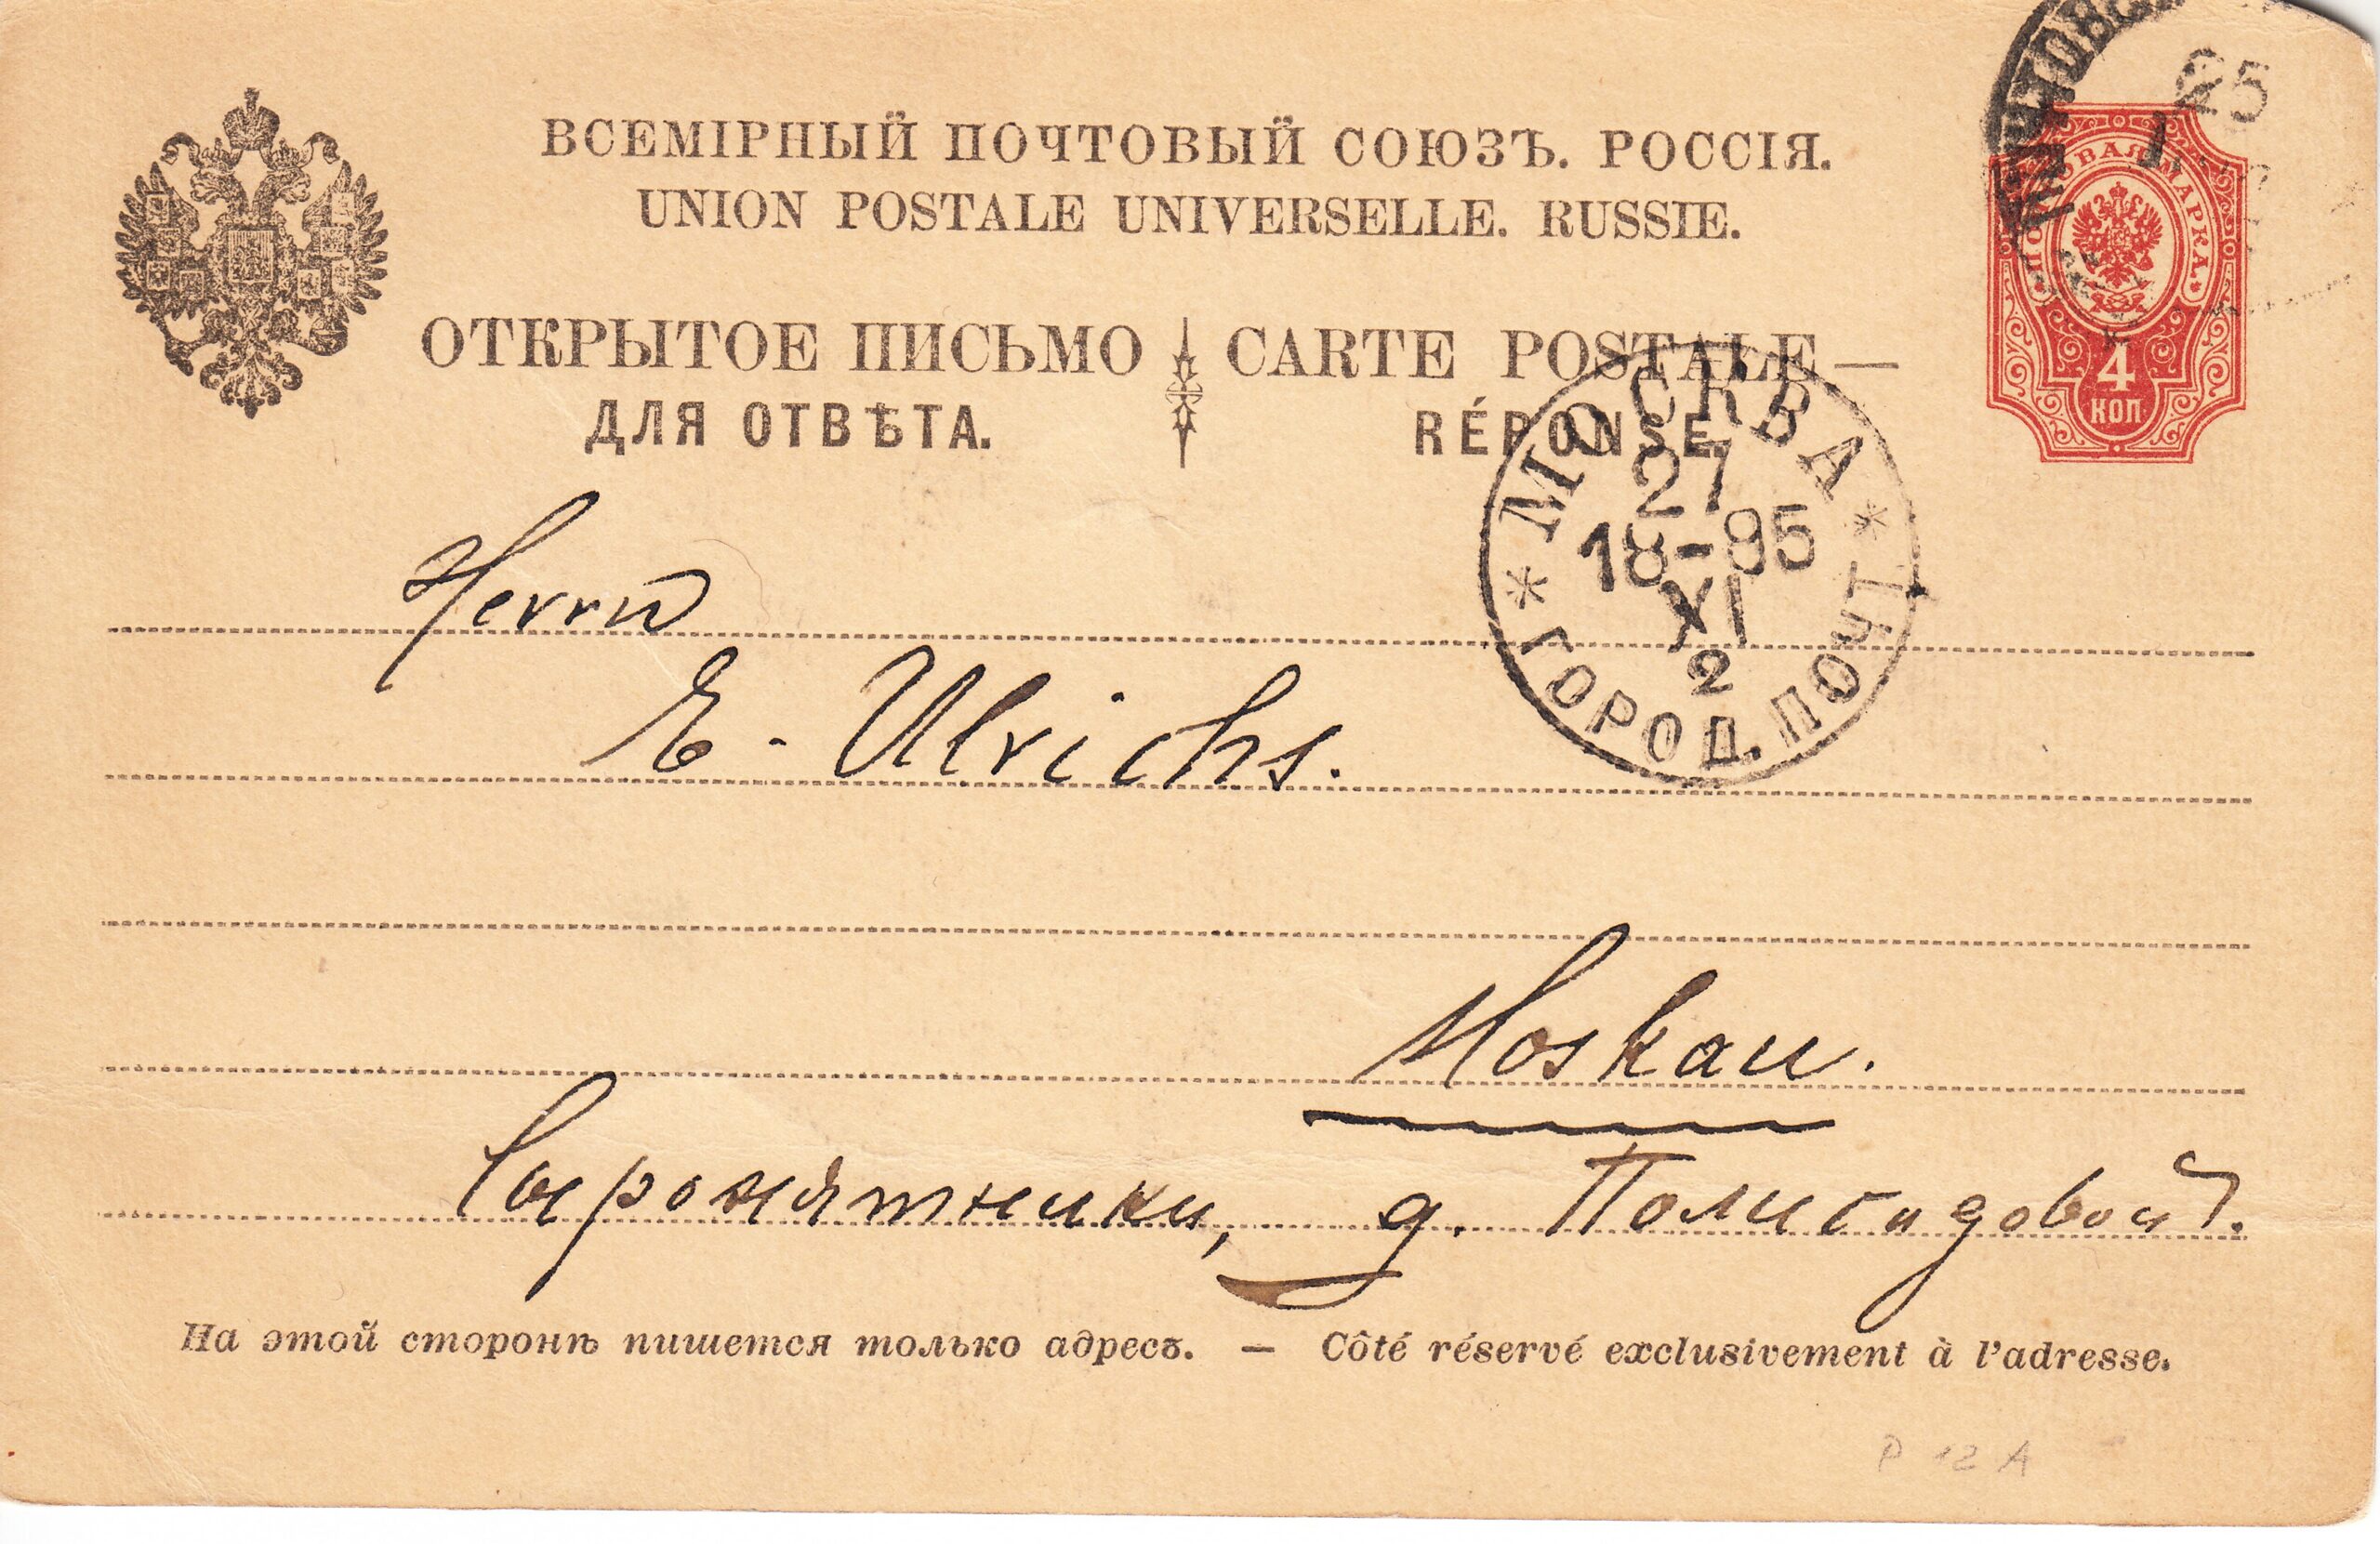 ВСЕМІРНЫЙ ПОЧТОВЫЙ СОЮЗЪ. РОССІЯ.
UNION POSTALE UNIVERSELLE. RUSSIE.
ОТКРЫТОЕ ПИСЬМО
ДЛЯ ОТВѢТА.
CARTE POSTALE —
RÉPONSE.
25
ПОЧТОВАЯ МАРКА
4
КОП
МОСКВА
27
18-95
XI
2
ГОРОД. ПОЧТ
Herrn
E. Ulrichs.
Moskau.
Сыромятники, д. Полисадовой.
На этой сторонѣ пишется только адресъ. — Côté réservé exclusivement à l'adresse.
P 12 A